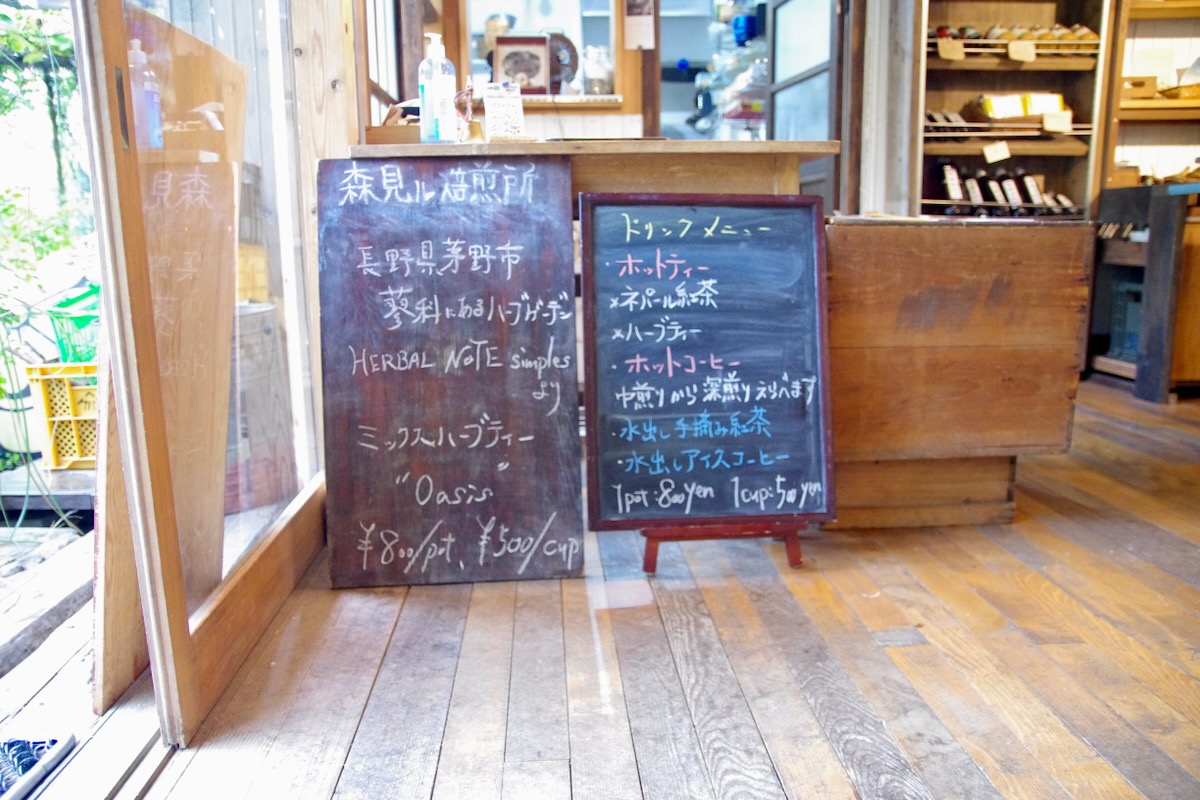 森見ル焙煎所
長野県茅野市
蓼科にあるハーブガーデン
HERBAL NOTE simples
より
ミックスハーブティー
"Oasis"
¥800/pot、¥500/cup
ドリンクメニュー
・ホットティー
×ネパール紅茶
×ハーブティー
・ホットコーヒー
中煎りから深煎りえらべます
・水出し手摘み紅茶
・水出しアイスコーヒー
1pot:800yen 1cup:500yen